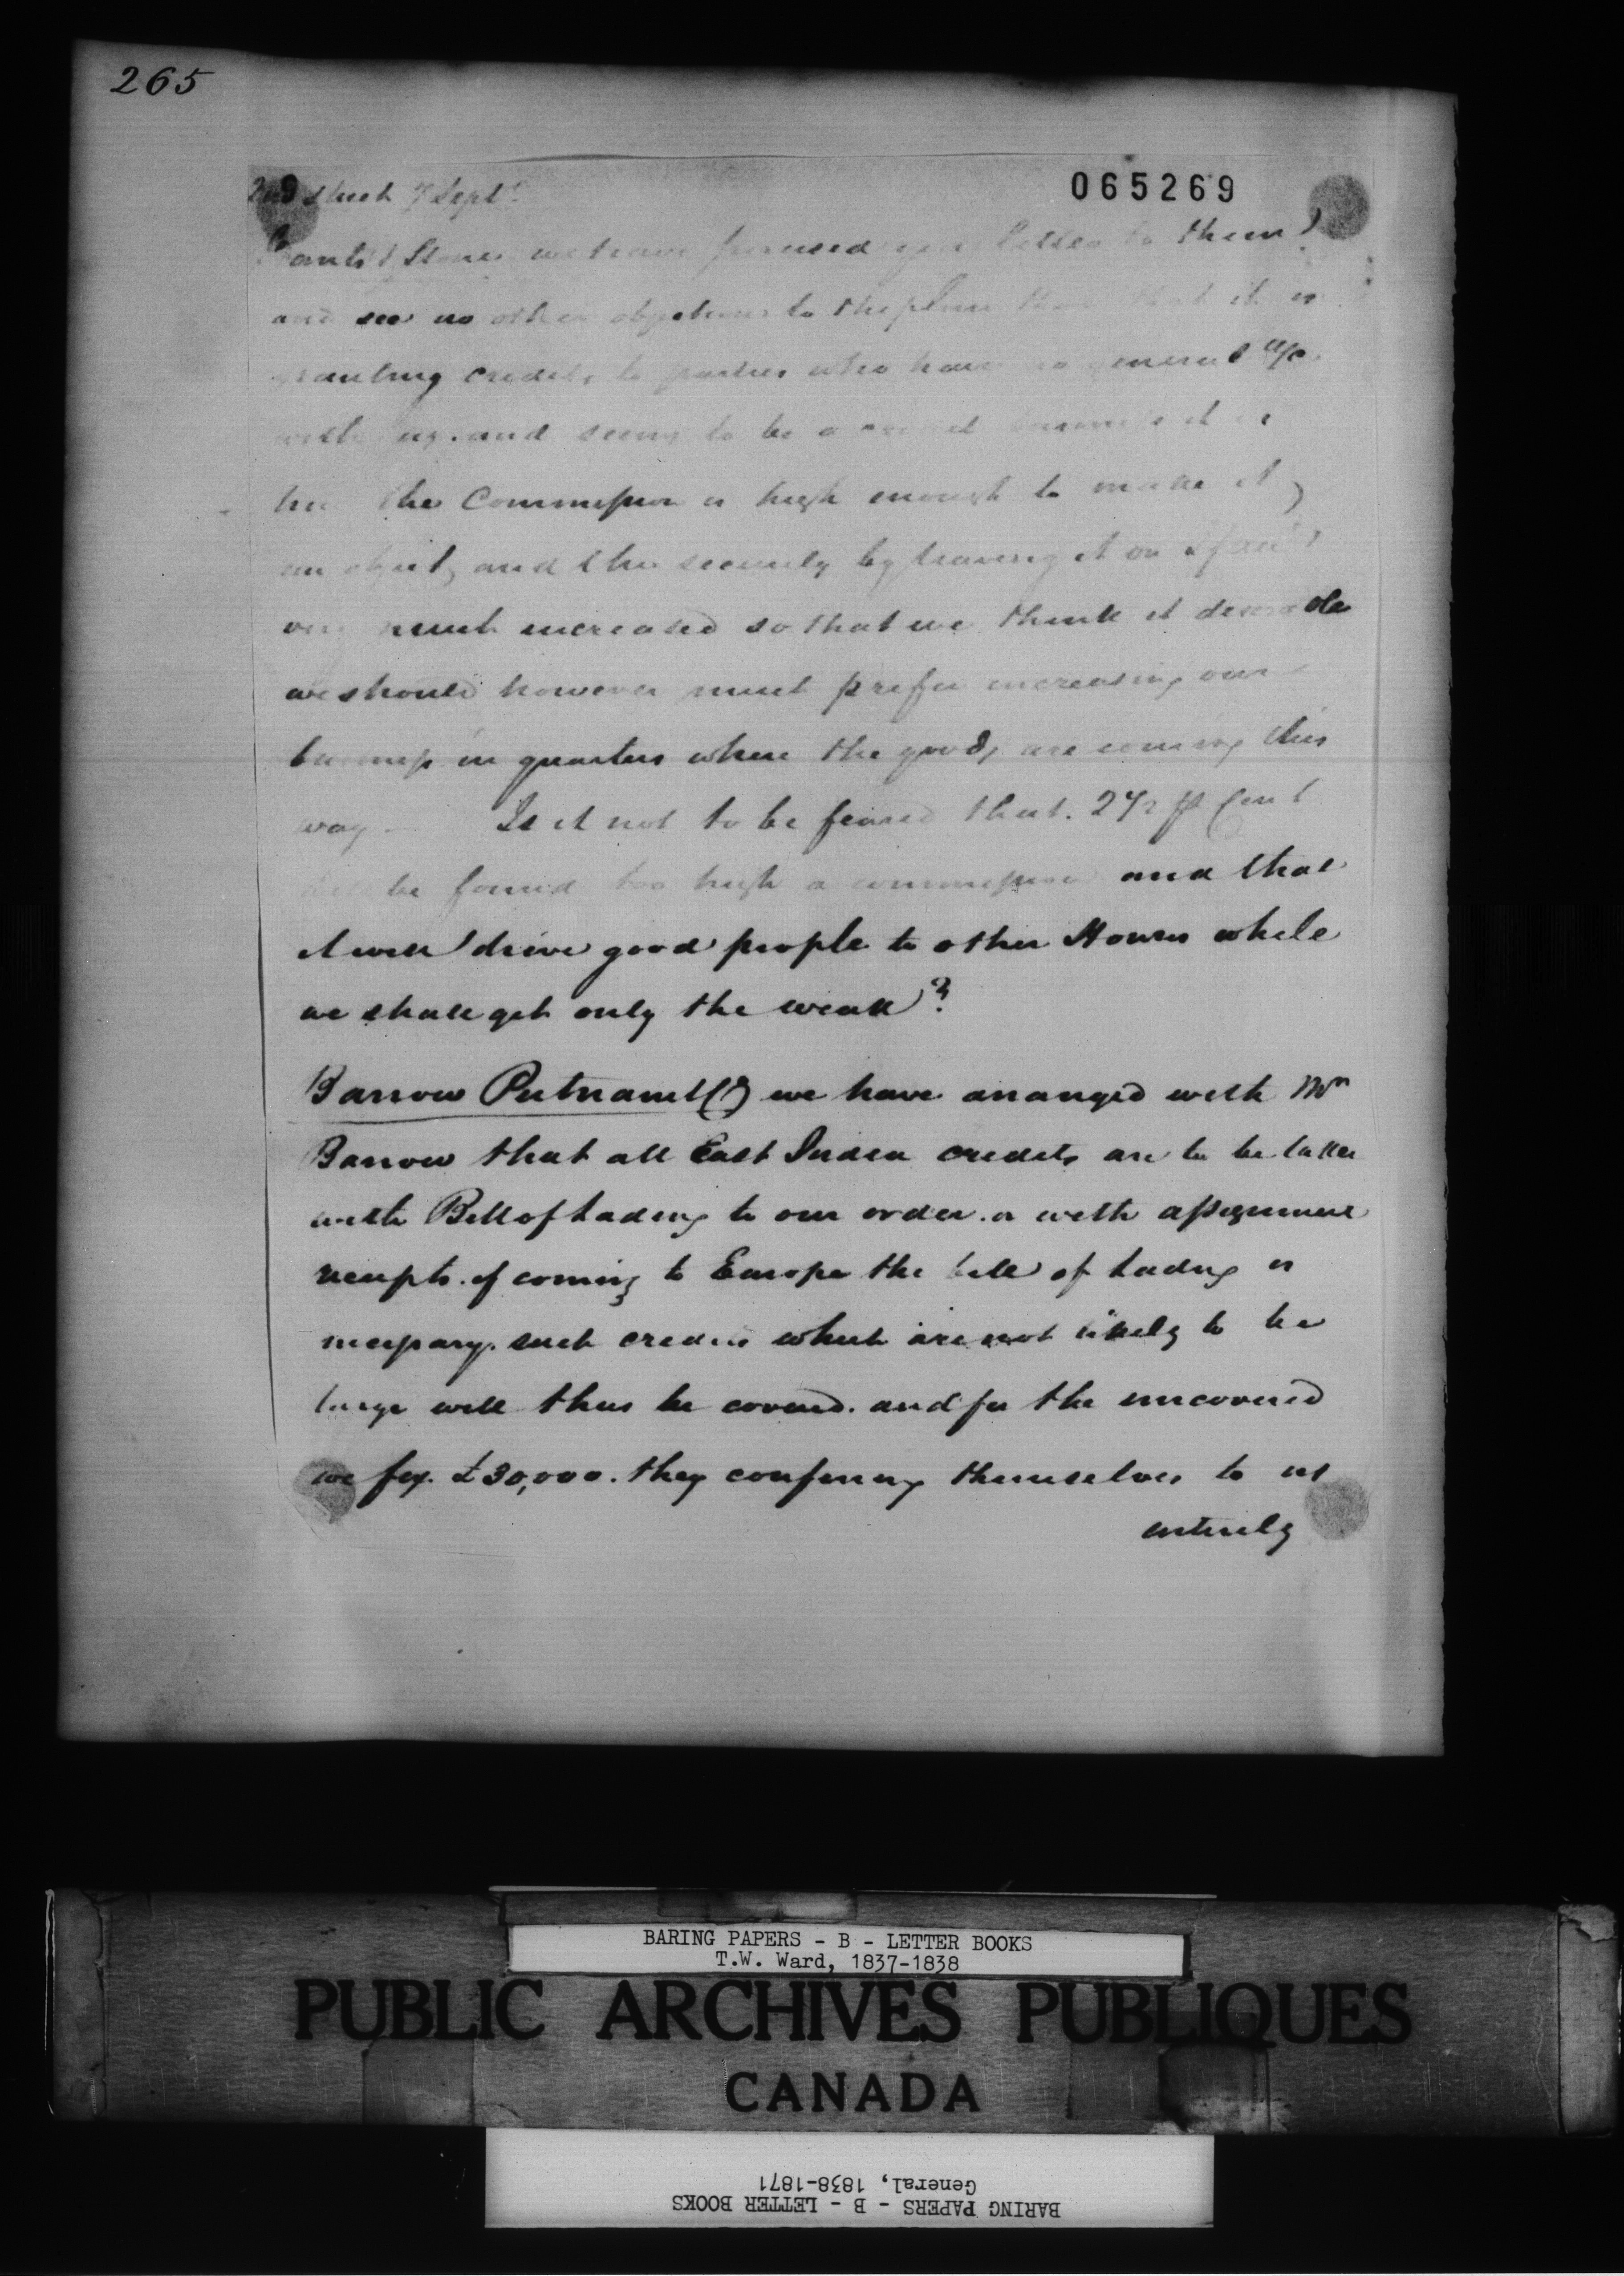 265
065269
2nd sheet 7 Sept.
& Stone we have perused your letter to them
and see no other objections to the plan than that it is
granting credits to parties who have no general a/c
with us. and seems to be a credit business it is
the Commission is high enough to make it
an object, and the security by having it on
very much increased so that we think it desirable
we should however much prefer increasing our
business in quarters where the goods are coming this
way – Is it not to be feared that. 2½ p Cent
will be found too high a commission and that
it will drive good people to other Houses while
we shall get only the weak?
Barrow Putnam & Co we have arranged with Mr
Barrow that all East India credits are to be taken
with Bill of Lading to our order. or with assignment
receipts. if coming to Europe the bill of lading is
necessary. such credits which are not likely to be
large will thus be covered. and for the uncovered
we fix. £30,000. they confining themselves to us
entirely
BARING PAPERS - B - LETTER BOOKS
T.W. Ward, 1837-1838
PUBLIC ARCHIVES PUBLIQUES
CANADA
BARING PAPERS - B - LETTER BOOKS
General, 1838-1871